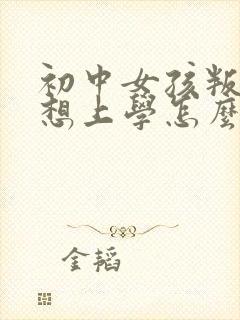 初中女孩叛
想上學怎麼
金韬